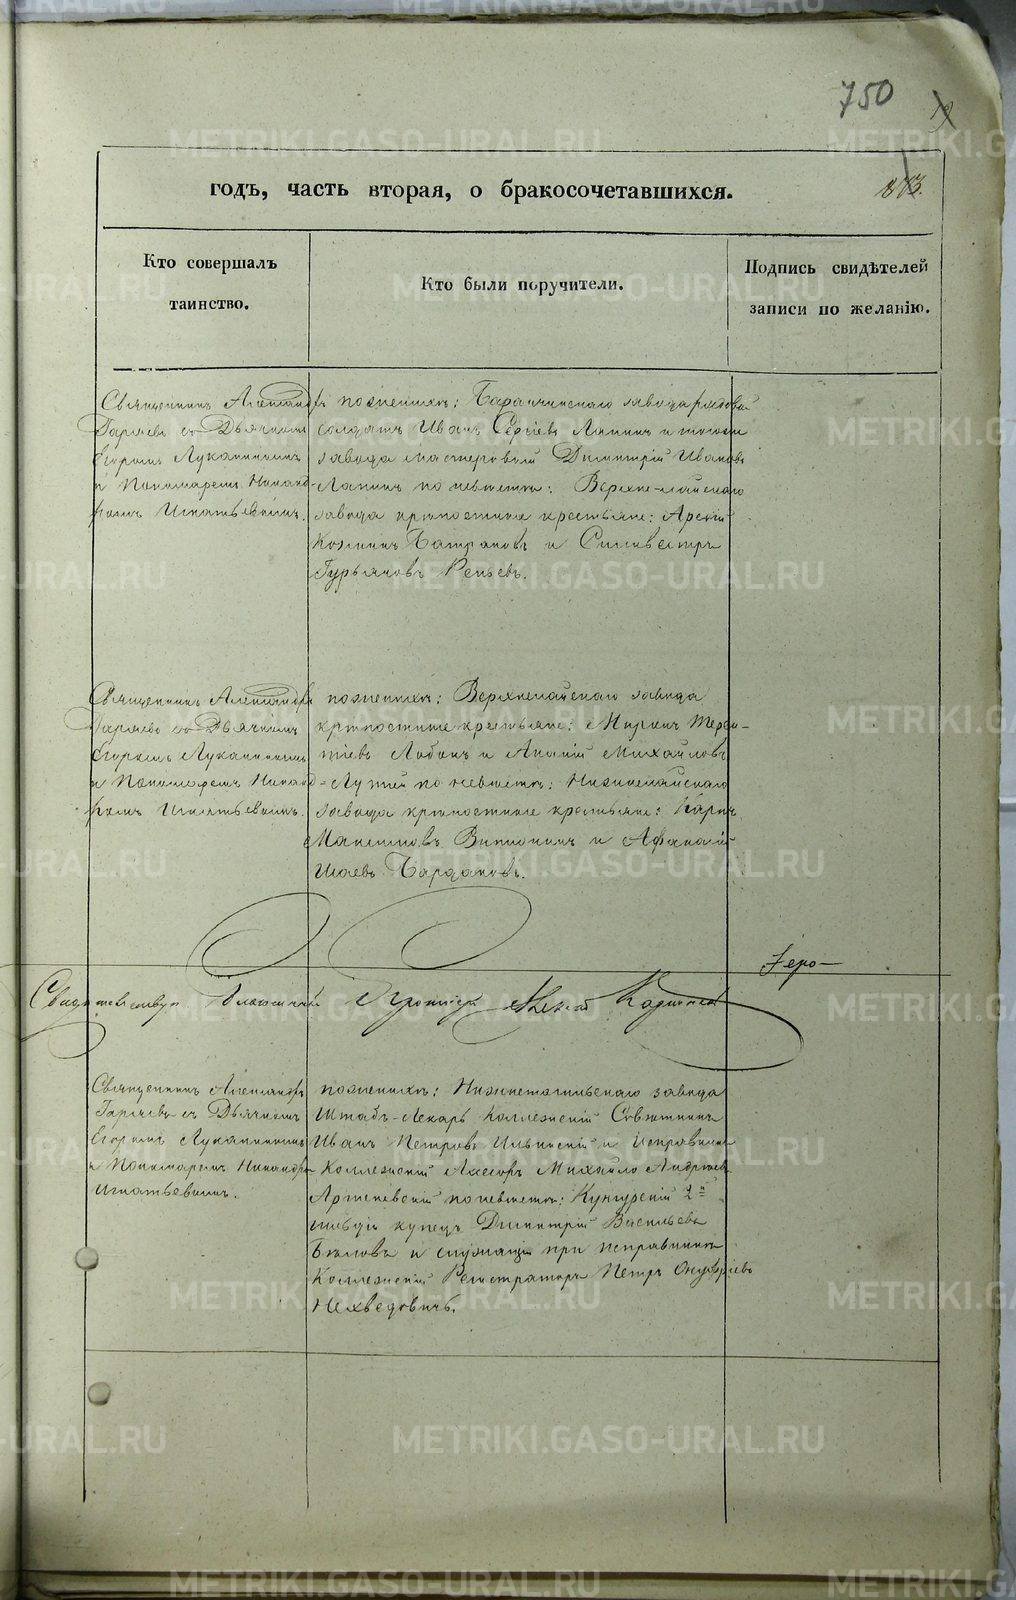 750
годъ, часть вторая, о бракосочетавшихся.
Кто совершалъ
таинство.
Кто были поручители.
Подпись свидѣтелей
записи по желанію.
Священникъ Александръ
съ Дьячкомъ
Егоромъ Лукканинымъ
и Пономаремъ Никанд-
ромъ Игнатьевымъ.
по женихѣ: Баранчинскаго завода
солдатъ Иванъ Сергѣевъ Лапинъ и того же
завода мастеровой Димитрій Ивановъ
Лапинъ по невѣстѣ: Верхне-лайскаго
завода крѣпостные крестьяне:
Козминъ и Сильвестръ
Гурьяновъ Репьевъ.
Священникъ Александръ
съ Дьячкомъ
Егоромъ Лукканинымъ
и Пономаремъ Никанд-
ромъ Игнатьевымъ.
по женихѣ: Верхнелайскаго завода
крѣпостные крестьяне: Терен-
тіевъ и Ананій Михайловъ
по невѣстѣ: Нижнелайскаго
завода крѣпостные крестьяне: Карпъ
и Афанасій
Исаевъ
Свидѣтельствую Благочинный Протоіерей
Священникъ Александръ
съ Дьячкомъ
Егоромъ Лукканинымъ
и Пономаремъ Никандромъ
Игнатьевымъ.
по женихѣ: Нижнетагильскаго завода
Штабъ-Лекарь Коллежскій Совѣтникъ
Иванъ Петровъ Ильинскій и Исправникъ
Коллежскій Ассесоръ Михайло Андреевъ
по невѣстѣ: Кунгурскій 2й
гильдіи купецъ Димитрій Васильевъ
Бѣловъ и служащій при исправникѣ
Коллежскій Регистраторъ Петръ Онуфріевъ
Нехведовичъ.
METRIKI.GASO-URAL.RU